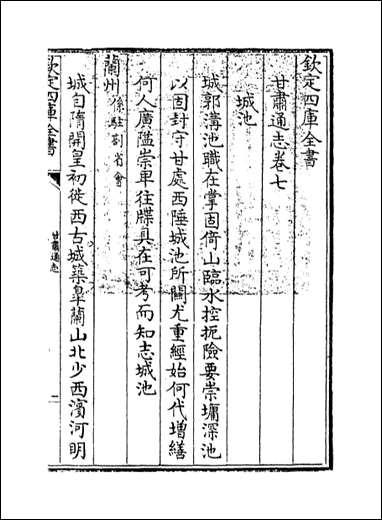 欽定四庫全書
甘肅通志卷七
城池
城郭溝池職在掌固倚山臨水控扼險要崇墉深池
以固封守甘處西陲城池所關尤重經始何代增繕
何人廣隘崇卑往牒具在可考而知志城池
蘭州係駐劄省會
城自隋開皇初徙西古城築臯蘭山北少西濱河明
欽定四庫全書
甘肅通志